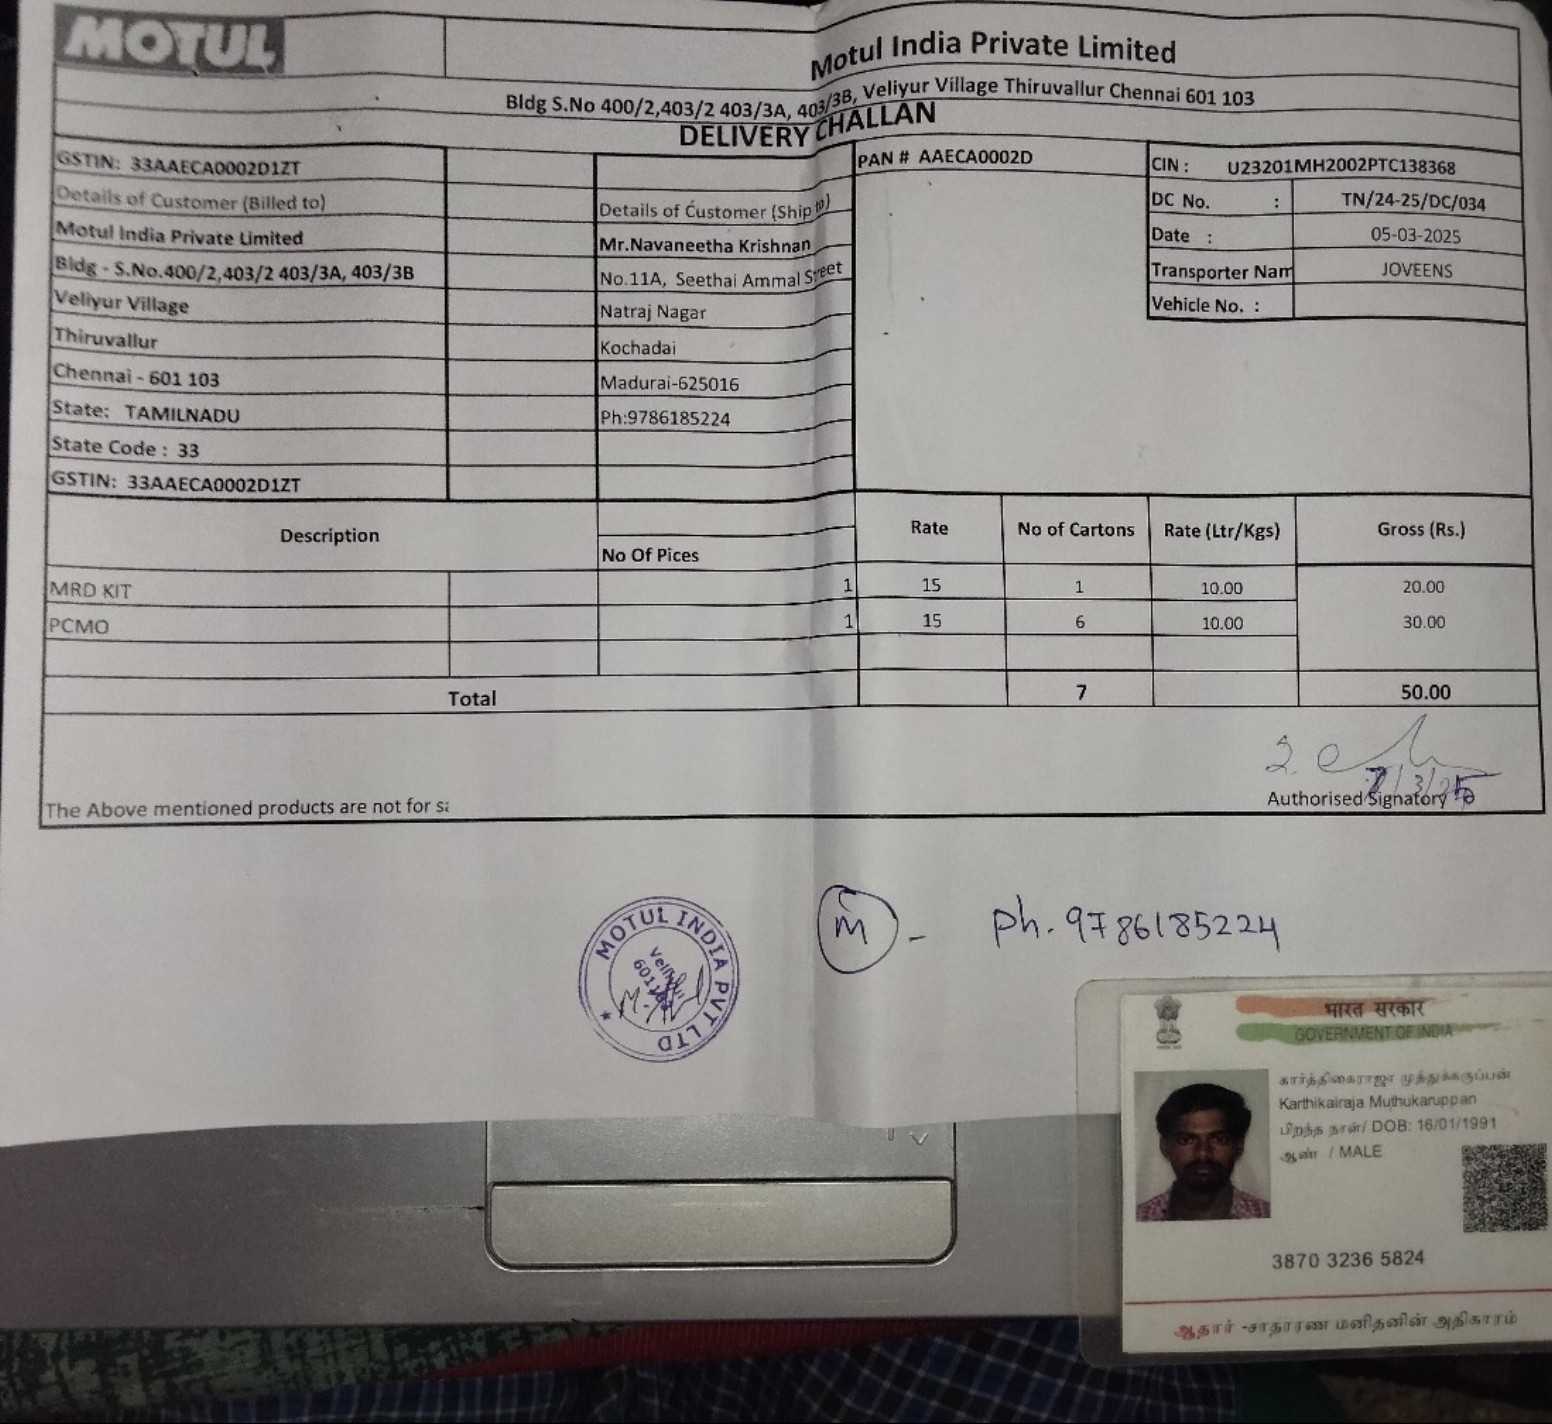 MOTUL
Motul India Private Limited
Bldg S.No 400/2,403/2 403/3A, 403/3B, Veliyur Village Thiruvallur Chennai 601 103
DELIVERY CHALLAN
GSTIN: 33AAECA0002D1ZT
PAN # AAECA0002D
CIN : U23201MH2002PTC138368
Details of Customer (Billed to)
Motul India Private Limited
Bldg - S.No.400/2,403/2 403/3A, 403/3B
Veliyur Village
Thiruvallur
Chennai - 601 103
State: TAMILNADU
State Code : 33
GSTIN: 33AAECA0002D1ZT
Details of Customer (Ship to)
Mr.Navaneetha Krishnan
No.11A, Seethai Ammal Street
Natraj Nagar
Kochadai
Madurai-625016
Ph:9786185224
DC No. : TN/24-25/DC/034
Date : 05-03-2025
Transporter Nam JOVEENS
Vehicle No. :
Description No Of Pices Rate No of Cartons Rate (Ltr/Kgs) Gross (Rs.)
MRD KIT 1 15 1 10.00 20.00
PCMO 1 15 6 10.00 30.00
Total 7 50.00
7/3/25
The Above mentioned products are not for sa
Authorised Signatory
MOTUL INDIA PVT LTD
M - Ph. 9786185224
भारत सरकार
GOVERNMENT OF INDIA
கார்த்திகைராஜா முத்துக்கருப்பன்
Karthikairaja Muthukaruppan
பிறந்த நாள்/ DOB: 16/01/1991
ஆண் / MALE
3870 3236 5824
ஆதார் -சாதாரண மனிதனின் அதிகாரம்